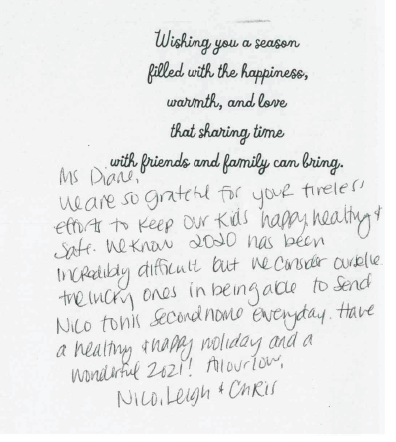 Wishing you a season
filled with the happiness,
warmth, and love
that sharing time
with friends and family can bring.
Ms Diane,
We are so grateful for your tireless
efforts to keep our kids happy, healthy &
safe. We know 2020 has been
incredibly difficult but we consider ourselve
the lucky ones in being able to send
Nico to his second home everyday. Have
a healthy & happy holiday and a
wonderful 2021! All our love,
Nico, Leigh & Chris